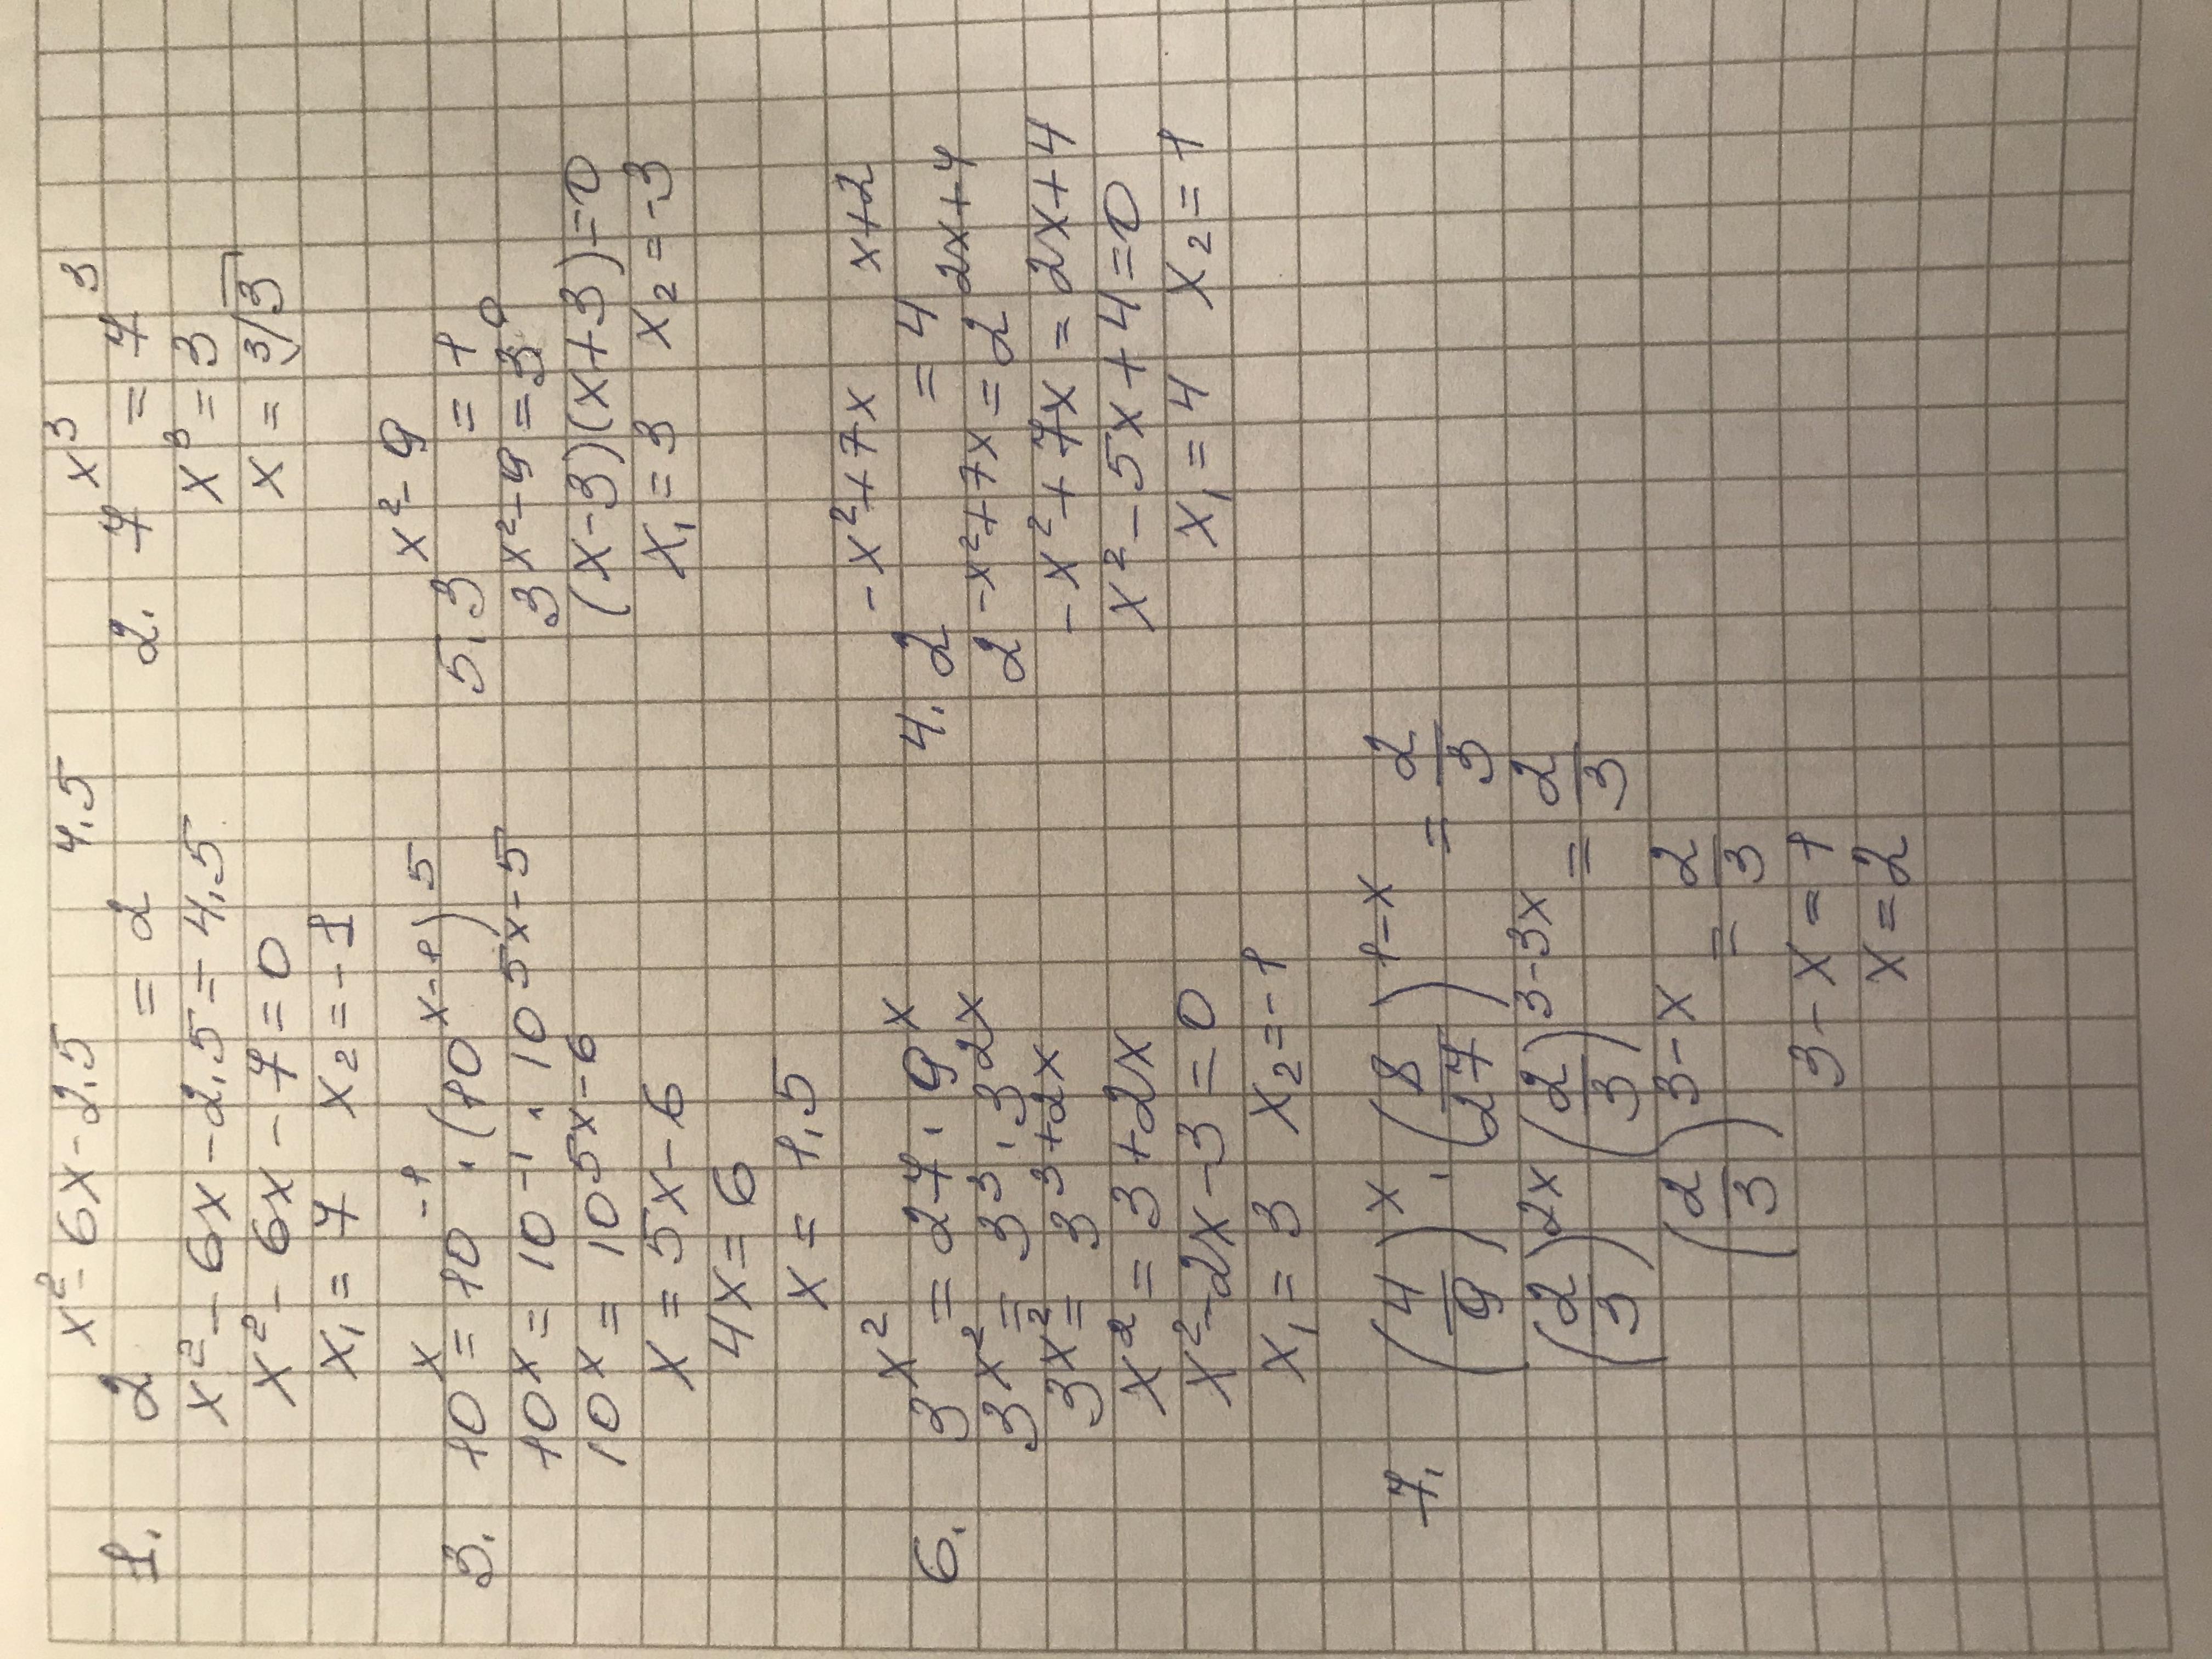 1. 2^{x^2-6x-2,5} = 2^{4,5}
x^2-6x-2,5=4,5
x^2-6x-7=0
x_1=7 x_2=-1
2. 7^{x^3} = 7^3
x^3=3
x=\sqrt[3]{3}
3. 10^x=10^{-1}·(10^{x-1})^5
10^x=10^{-1}·10^{5x-5}
10^x=10^{5x-6}
x=5x-6
4x=6
x=1,5
5. 3^{x^2-9}=1
3^{x^2-9}=3^0
(x-3)(x+3)=0
x_1=3 x_2=-3
6. 3^{x^2}=27·9^x
3^{x^2}=3^3·3^{2x}
3^{x^2}=3^{3+2x}
x^2=3+2x
x^2-2x-3=0
x_1=3 x_2=-1
4. 2^{-x^2+7x}=4^{x+2}
2^{-x^2+7x}=2^{2x+4}
-x^2+7x=2x+4
x^2-5x+4=0
x_1=4 x_2=1
7. (4/9)^x·(8/27)^{1-x}=2/3
(2/3)^{2x}(2/3)^{3-3x}=2/3
(2/3)^{3-x}=2/3
3-x=1
x=2